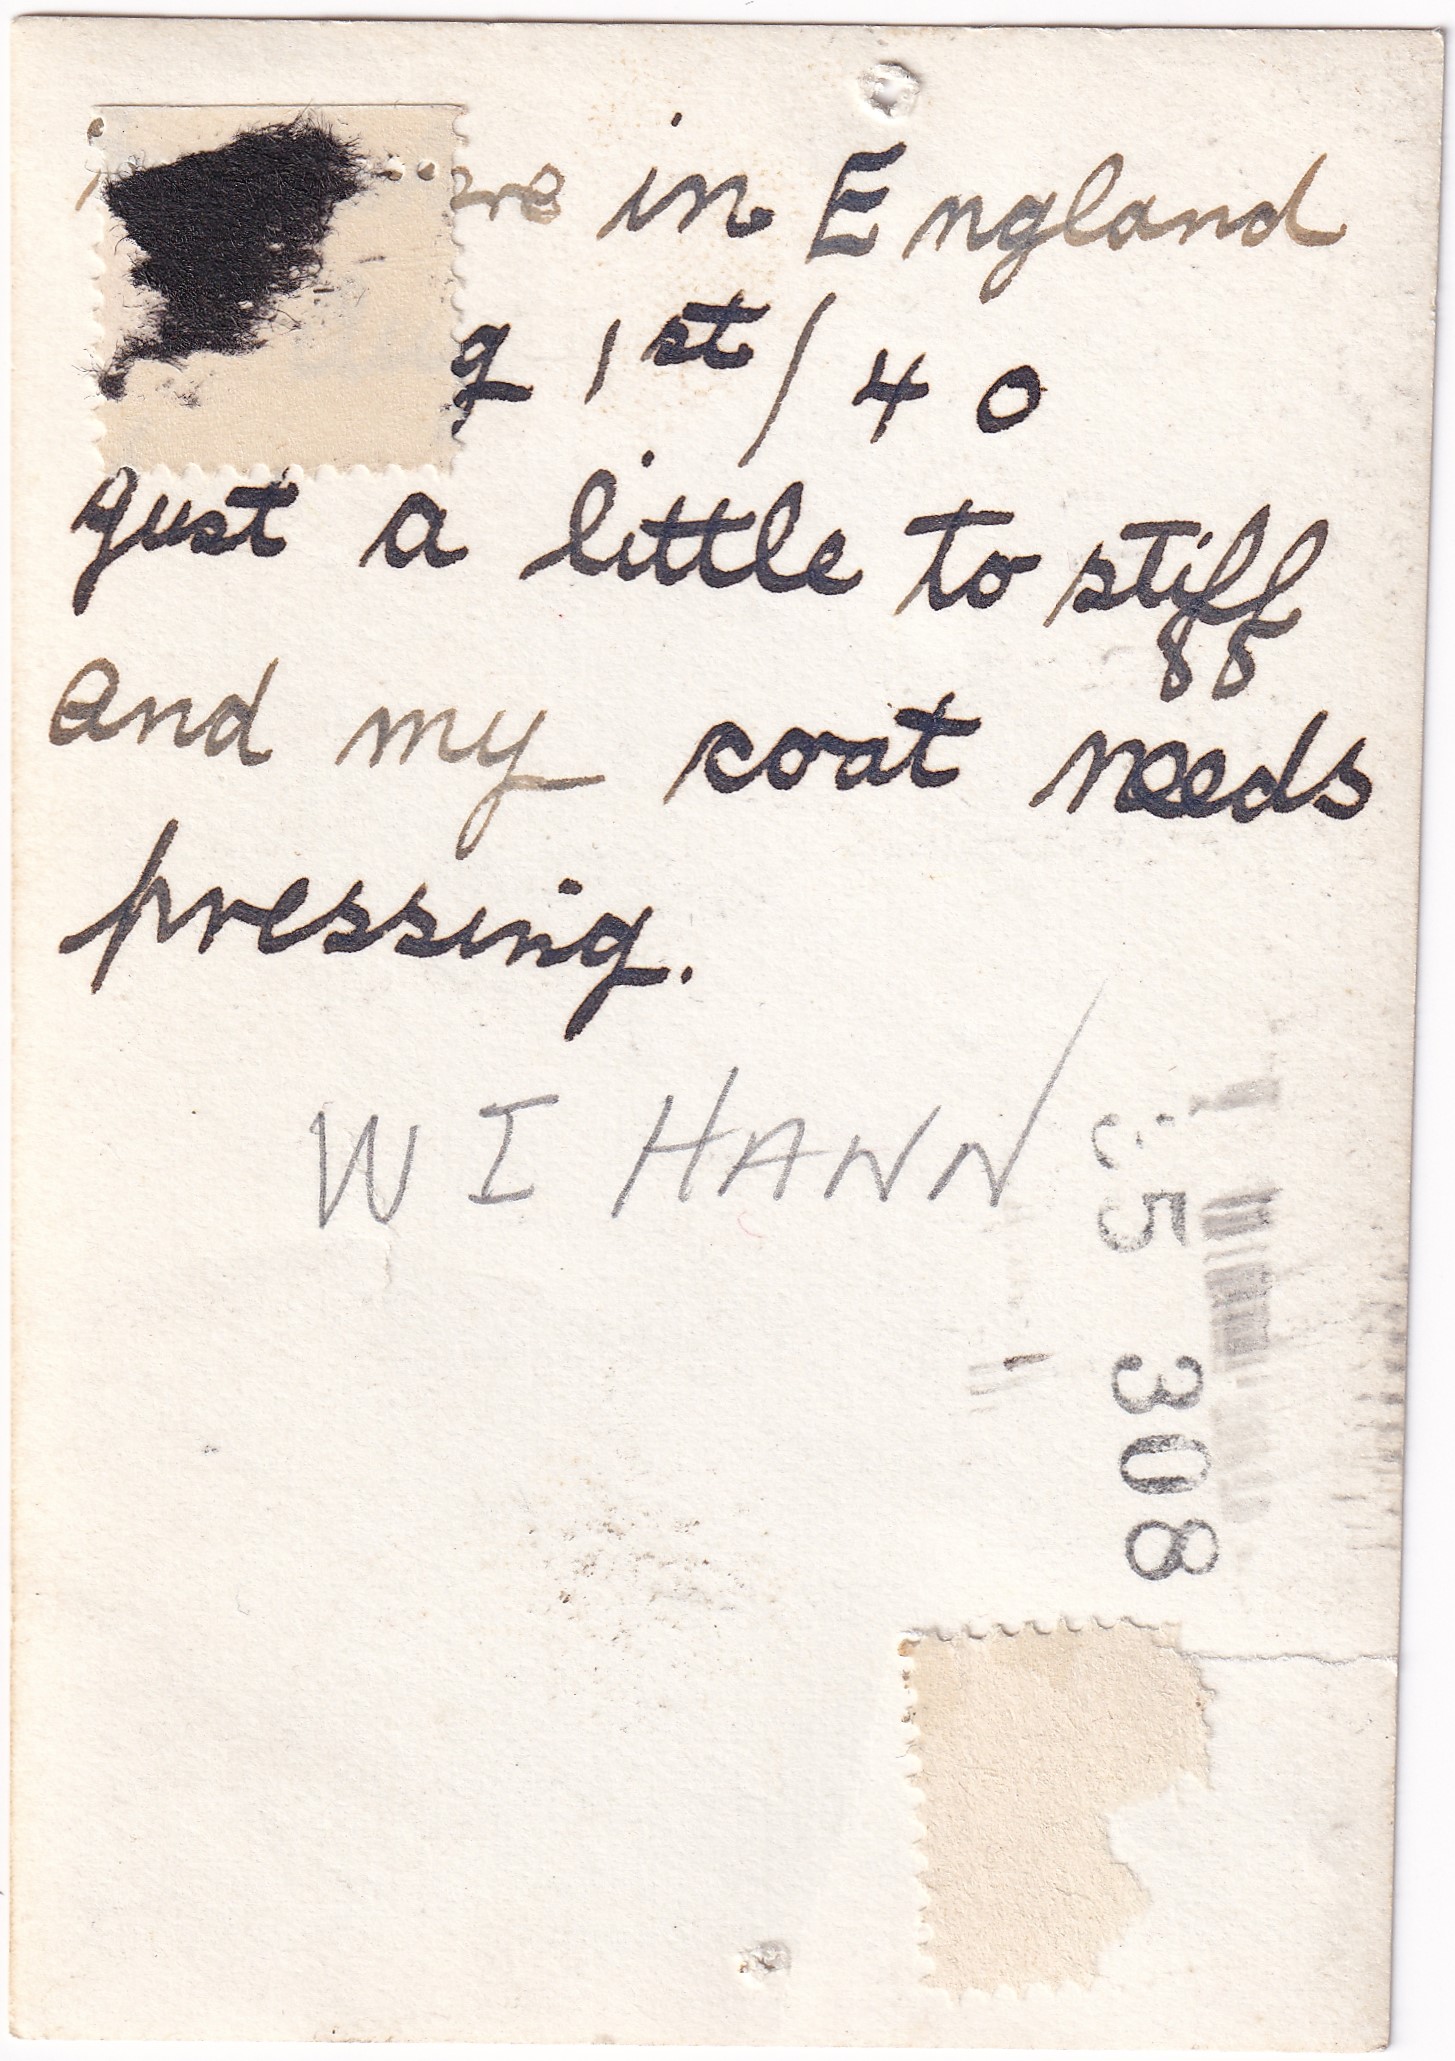 in England
g 1st/40
just a little to stiff
and my coat needs
pressing.
W I HANN
5 308